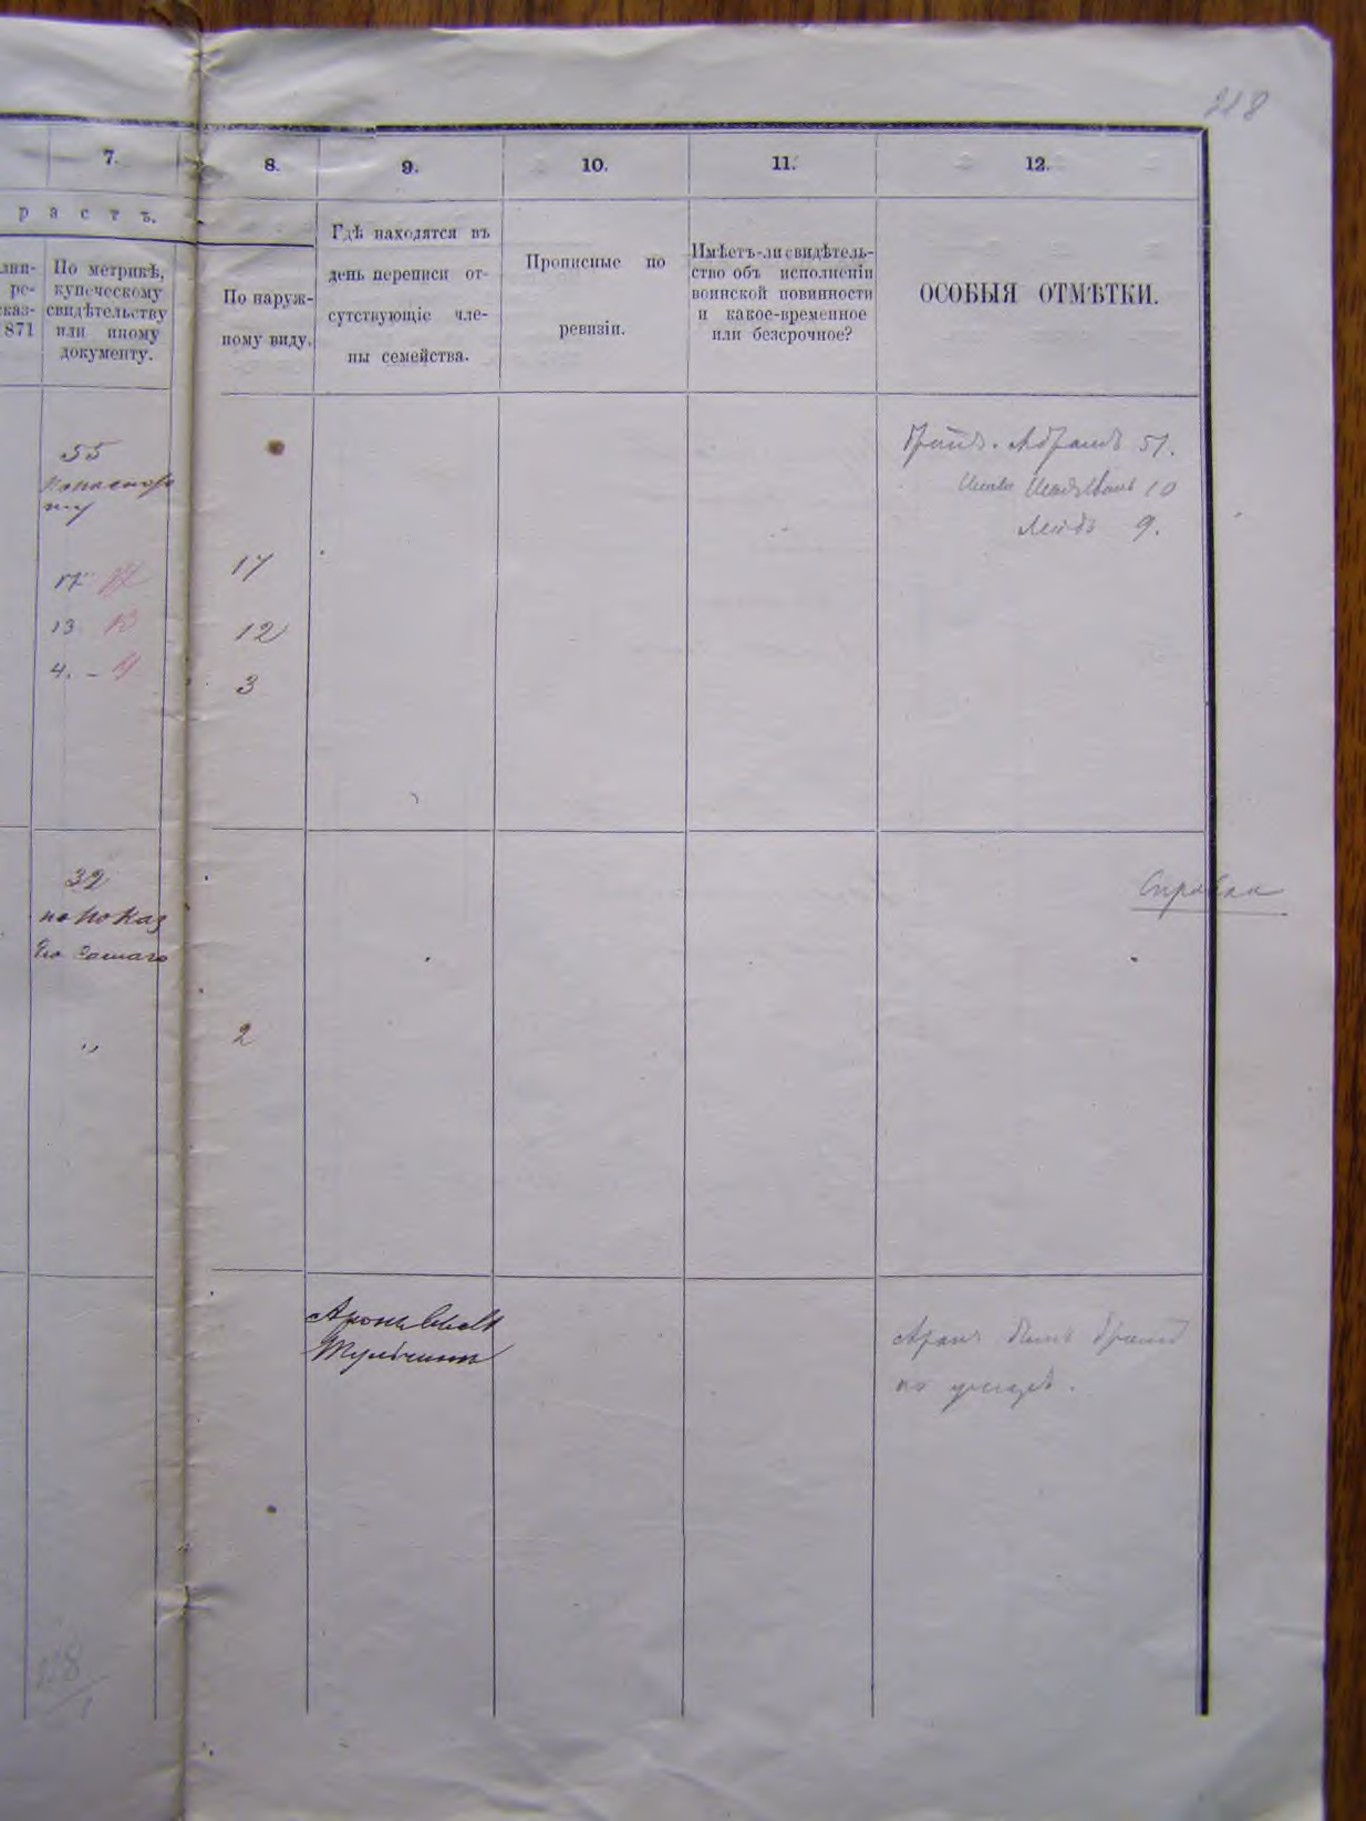 218
7.
8.
9.
10.
11.
12.
растъ.
По метрикѣ,
купеческому
свидѣтельству
или иному
документу.
1871
По наруж-
ному виду.
Гдѣ находятся въ
день переписи от-
сутствующіе чле-
ны семейства.
Прописные по
ревизіи.
Имѣетъ-ли свидѣтель-
ство объ исполненіи
воинской повинности
и какое-временное
или безсрочное?
ОСОБЫЯ ОТМѢТКИ.
55
17 17
13 13
4. - 4
17
12
3
Абрамъ 51.
10
Лейбъ 9.
32
по показ
Его самаго
"
2
Справка
Аронъ
Тульчинъ
Аронъ
по
118
1